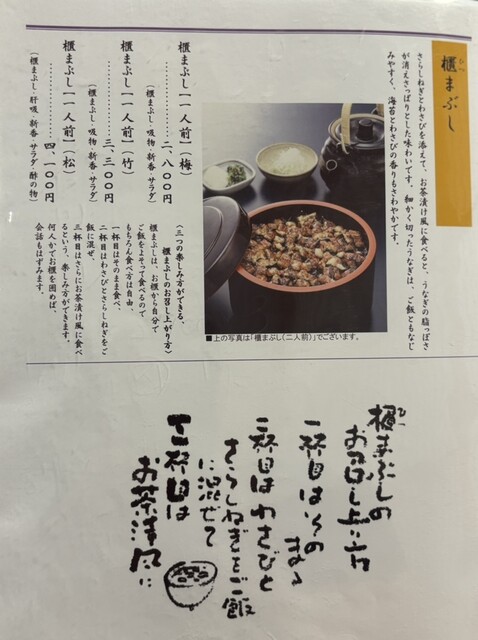 櫃まぶし
ひつ
さらしねぎとわさびを添えて、お茶漬け風に食べると、うなぎの脂っぽさ
が消えさっぱりとした味わいです。細かく切ったうなぎは、ご飯ともなじ
みやすく、海苔とわさびの香りもさわやかです。
■上の写真は「櫃まぶし(二人前)」でございます。
櫃まぶし【一人前】(梅)
…………………二、八〇〇円
(櫃まぶし・吸物・新香・サラダ)
櫃まぶし【一人前】(竹)
…………………三、三〇〇円
(櫃まぶし・吸物・新香・サラダ)
櫃まぶし【一人前】(松)
…………………四、一〇〇円
(櫃まぶし・肝吸・新香・サラダ・酢の物)
(三つの楽しみ方ができる、
櫃まぶしのお召し上がり方)
櫃まぶしは、お櫃から自分で
ご飯をよそって食べるので
もちろん食べ方は自由、
一杯目はそのまま食べ、
二杯目はわさびとさらしねぎをご
飯に混ぜ、
三杯目はさらにお茶漬け風に食べ
るという、楽しみ方ができます。
何人かでお櫃を囲めば、
会話もはずみます。
櫃まぶしの
ひつ
お召し上り方
一杯目はそのまま
二杯目はわさびと
さらしねぎをご飯
に混ぜて
三杯目は
お茶漬風に